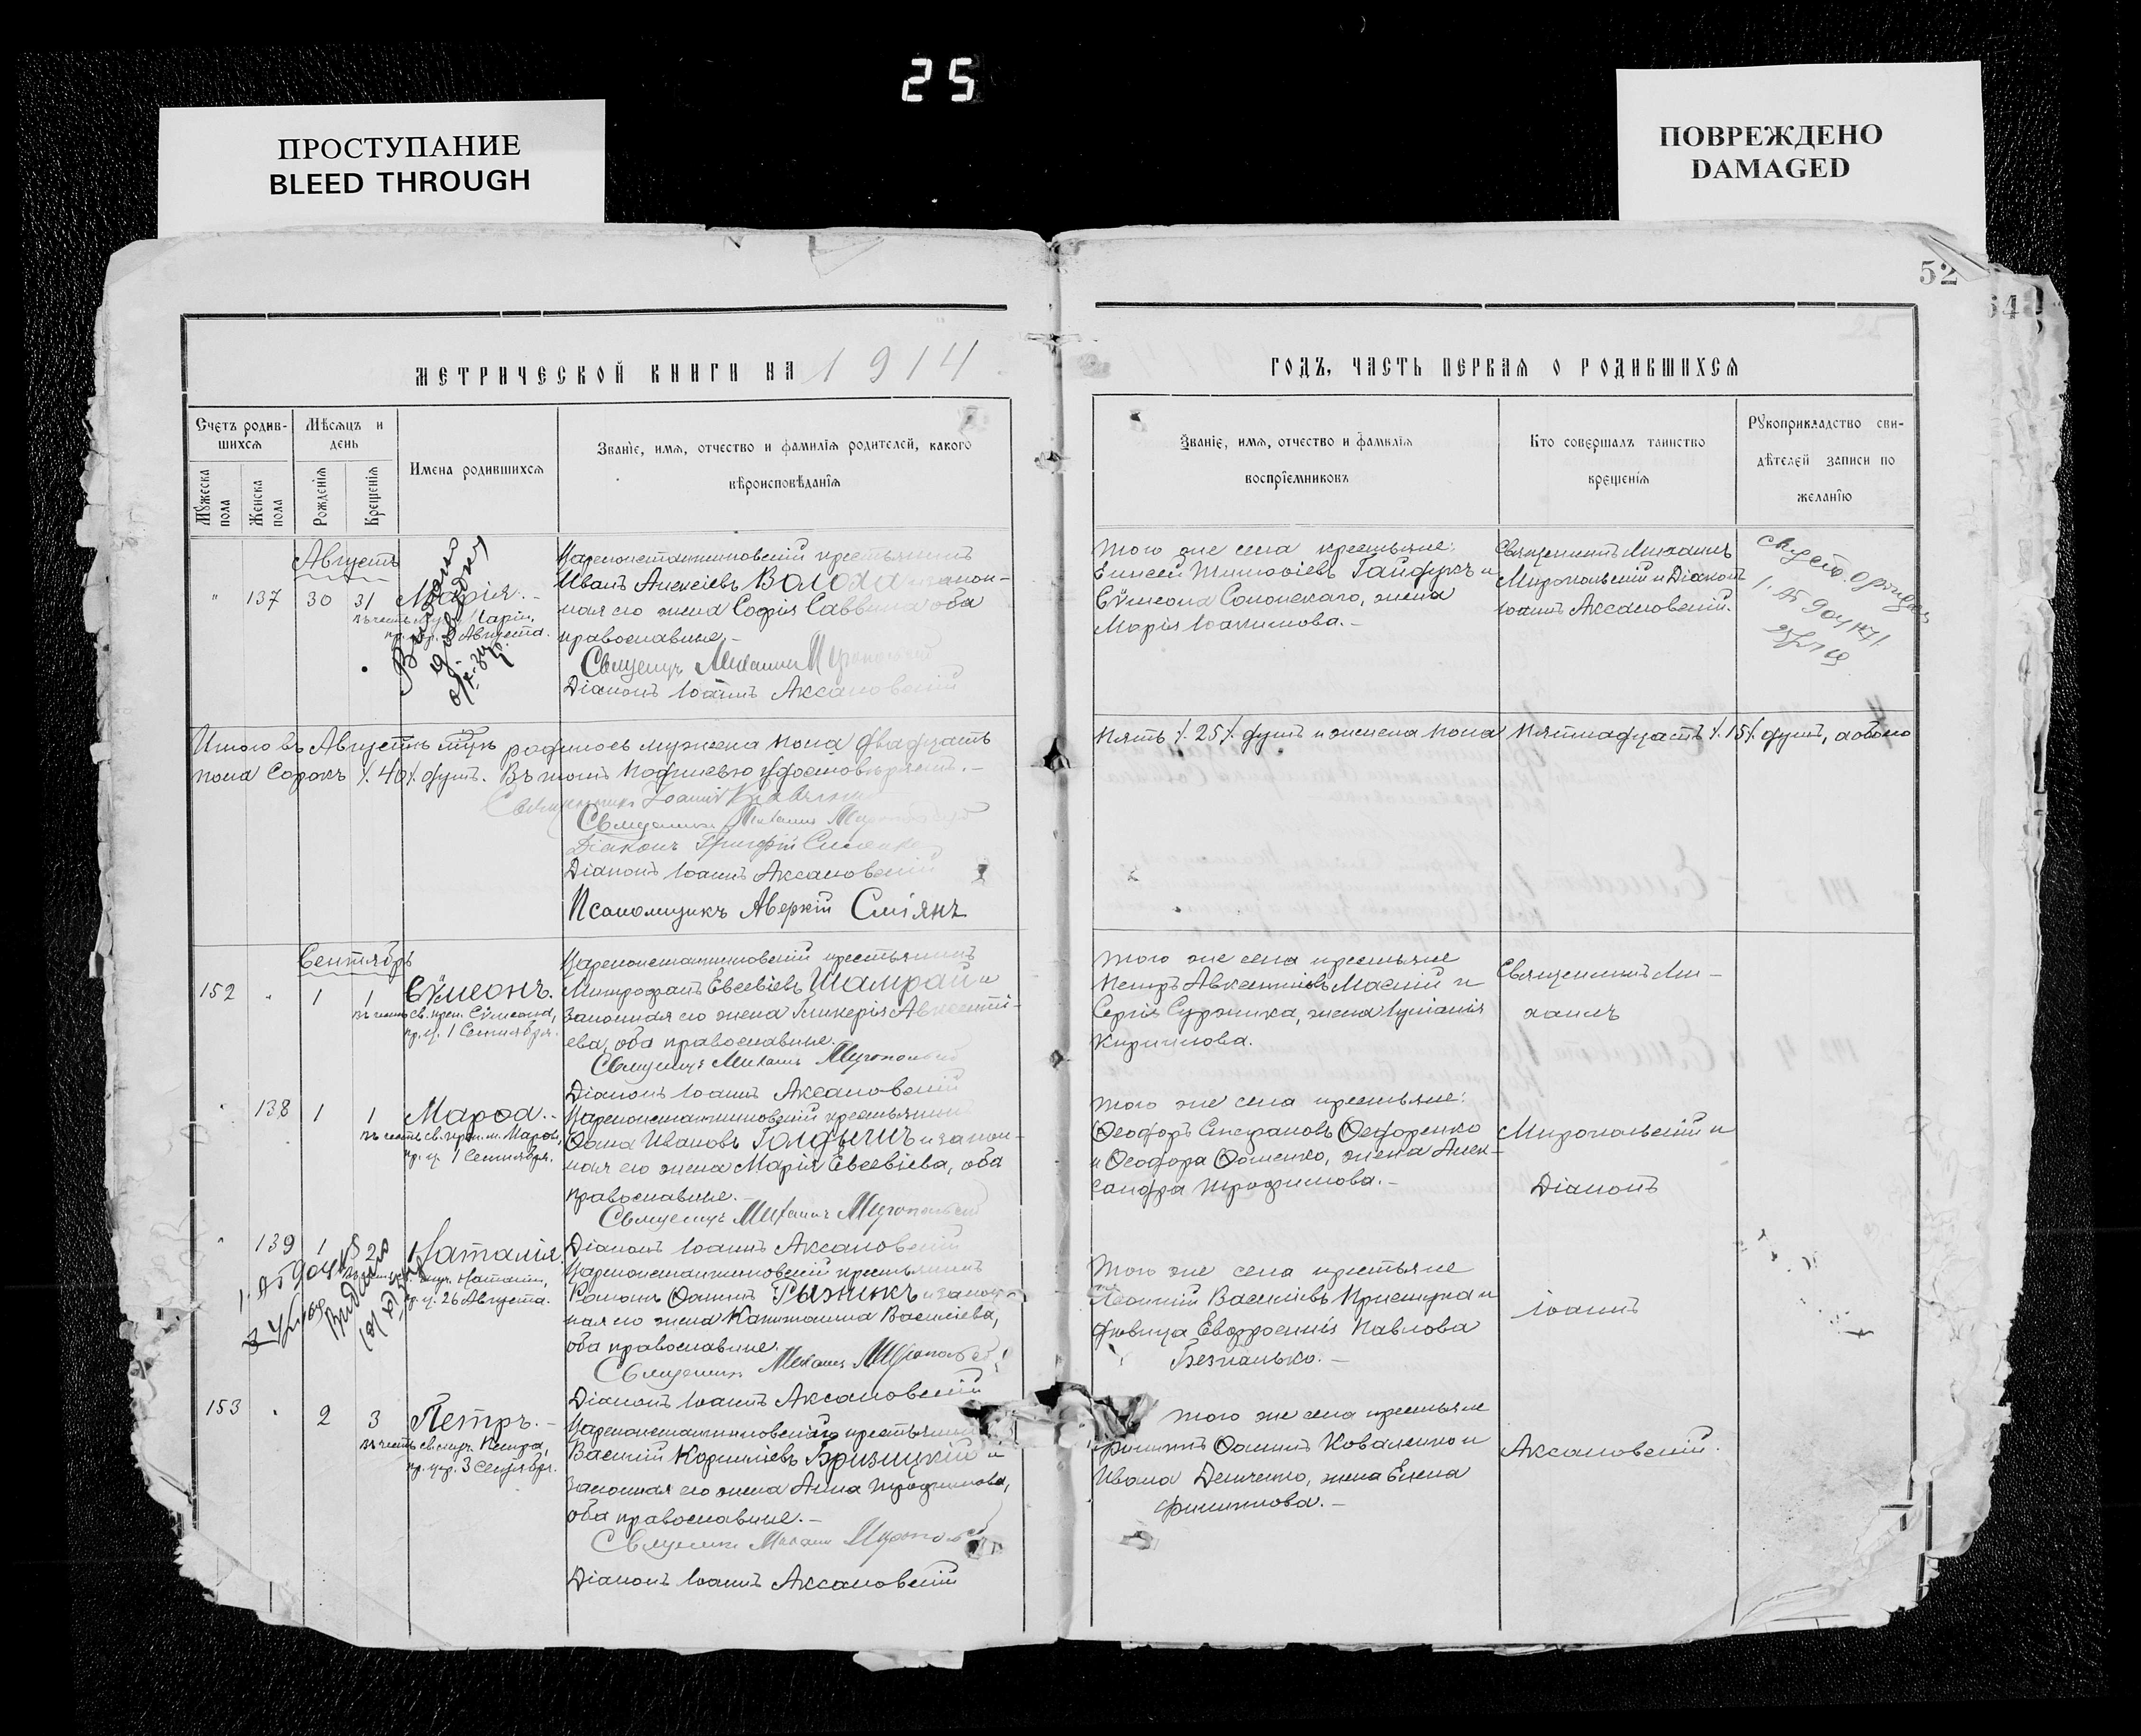 25
ПРОСТУПАНИЕ
BLEED THROUGH
ПОВРЕЖДЕНО
DAMAGED
52
54
МЕТРИЧЕСКОЙ КНИГИ НА 1914
ГОДЪ, ЧАСТЬ ПЕРВАЯ О РОДИВШИХСЯ
Счетъ родив-
шихся
Мѣсяцъ и
день
Мужеска
пола
Женска
пола
Рожденія
Крещенія
Имена родившихся
Званіе, имя, отчество и фамилія родителей, какого
вѣроисповѣданія
Званіе, имя, отчество и фамилія
воспріемниковъ
Кто совершалъ таинство
крещенія
Рукоприкладство сви-
дѣтелей записи по
желанію
Августъ
" 137 30 31 Марія.-
Маріи,
Августа.
Цареконстантиновскій крестьянинъ
Иванъ Алексіевъ Волоха и закон-
ная его жена Софія Саввина оба
православные.-
Священ. Михаилъ Миропольскій
Діаконъ Іоаннъ Аксановскій
Того же села крестьяне:
Елисей Тимофіевъ Гайдукъ и
Сѵмеона Солонскаго, жена
Марія Іоакимова.-
Священникъ Михаилъ
Миропольскій и Діаконъ
Іоаннъ Аксановскій.
Итого въ Августѣ мцѣ родилось мужеска пола двадцать
пять /.25/. душъ и женска пола пятнадцать /.15/. душъ, а обоего
пола сорокъ /.40/. душъ. Въ томъ подписью удостовѣряемъ.-
Священникъ Іоаннъ
Священникъ Михаилъ Миропольскій
Діаконъ Григорій
Діаконъ Іоаннъ Аксановскій
Псаломщикъ Аверкій Сміянъ
Сентябрь
152 " 1 1 Сѵмеонъ.
въ честь св. преп. Сѵмеона,
пр. ц. 1 Сентября.
Цареконстантиновскій крестьянинъ
Митрофанъ Евсевіевъ Шамрай и
законная его жена Гликерія Авксенті-
ева, оба православные.
Священ. Михаилъ Миропольскій
Діаконъ Іоаннъ Аксановскій
Того же села крестьяне
Петръ Авксентіевъ Масній и
Сергія Суржика, жена Іуліанія
Кириллова.
Священникъ Ми-
хаилъ
" 138 1 1 Марѳа.-
въ честь св. Марѳы,
пр. ц. 1 Сентября.
Цареконстантиновскій крестьянинъ
Ѳома Ивановъ Голдычъ и закон-
ная его жена Марія Евсевіева, оба
православные.-
Священ. Михаилъ Миропольскій
Діаконъ Іоаннъ Аксановскій
Того же села крестьяне:
Ѳеодоръ Стефановъ Ѳедоренко
и Ѳеодора Ѳоменко, жена Алек-
сандра Трофимова.-
Миропольскій и
Діаконъ
" 139 1 2 Наталія.
Наталіи,
пр. ц. 26 Августа.
Цареконстантиновскій крестьянинъ
Романъ Ѳоминъ Рыжикъ и закон-
ная его жена Капитолина Василіева,
оба православные.
Священникъ Михаилъ Миропольскій
Діаконъ Іоаннъ Аксановскій
Того же села крестьяне
Леонтій Василіевъ и
дѣвица Евфросинія Павлова
Безпалько.-
Іоаннъ
153 " 2 3 Петръ.-
въ честь св. муч. Петра,
пр. цер. 3 Сентября.
Цареконстантиновскій крестьянинъ
Василій Корниліевъ Бризицкій и
законная его жена Анна Трофимова,
оба православные.-
Священникъ Михаилъ
Діаконъ Іоаннъ Аксановскій
Того же села крестьяне
Филиппъ Ѳоминъ Коваленко и
Ивана Демченко, жена Елена
Филиппова.-
Аксановскій.